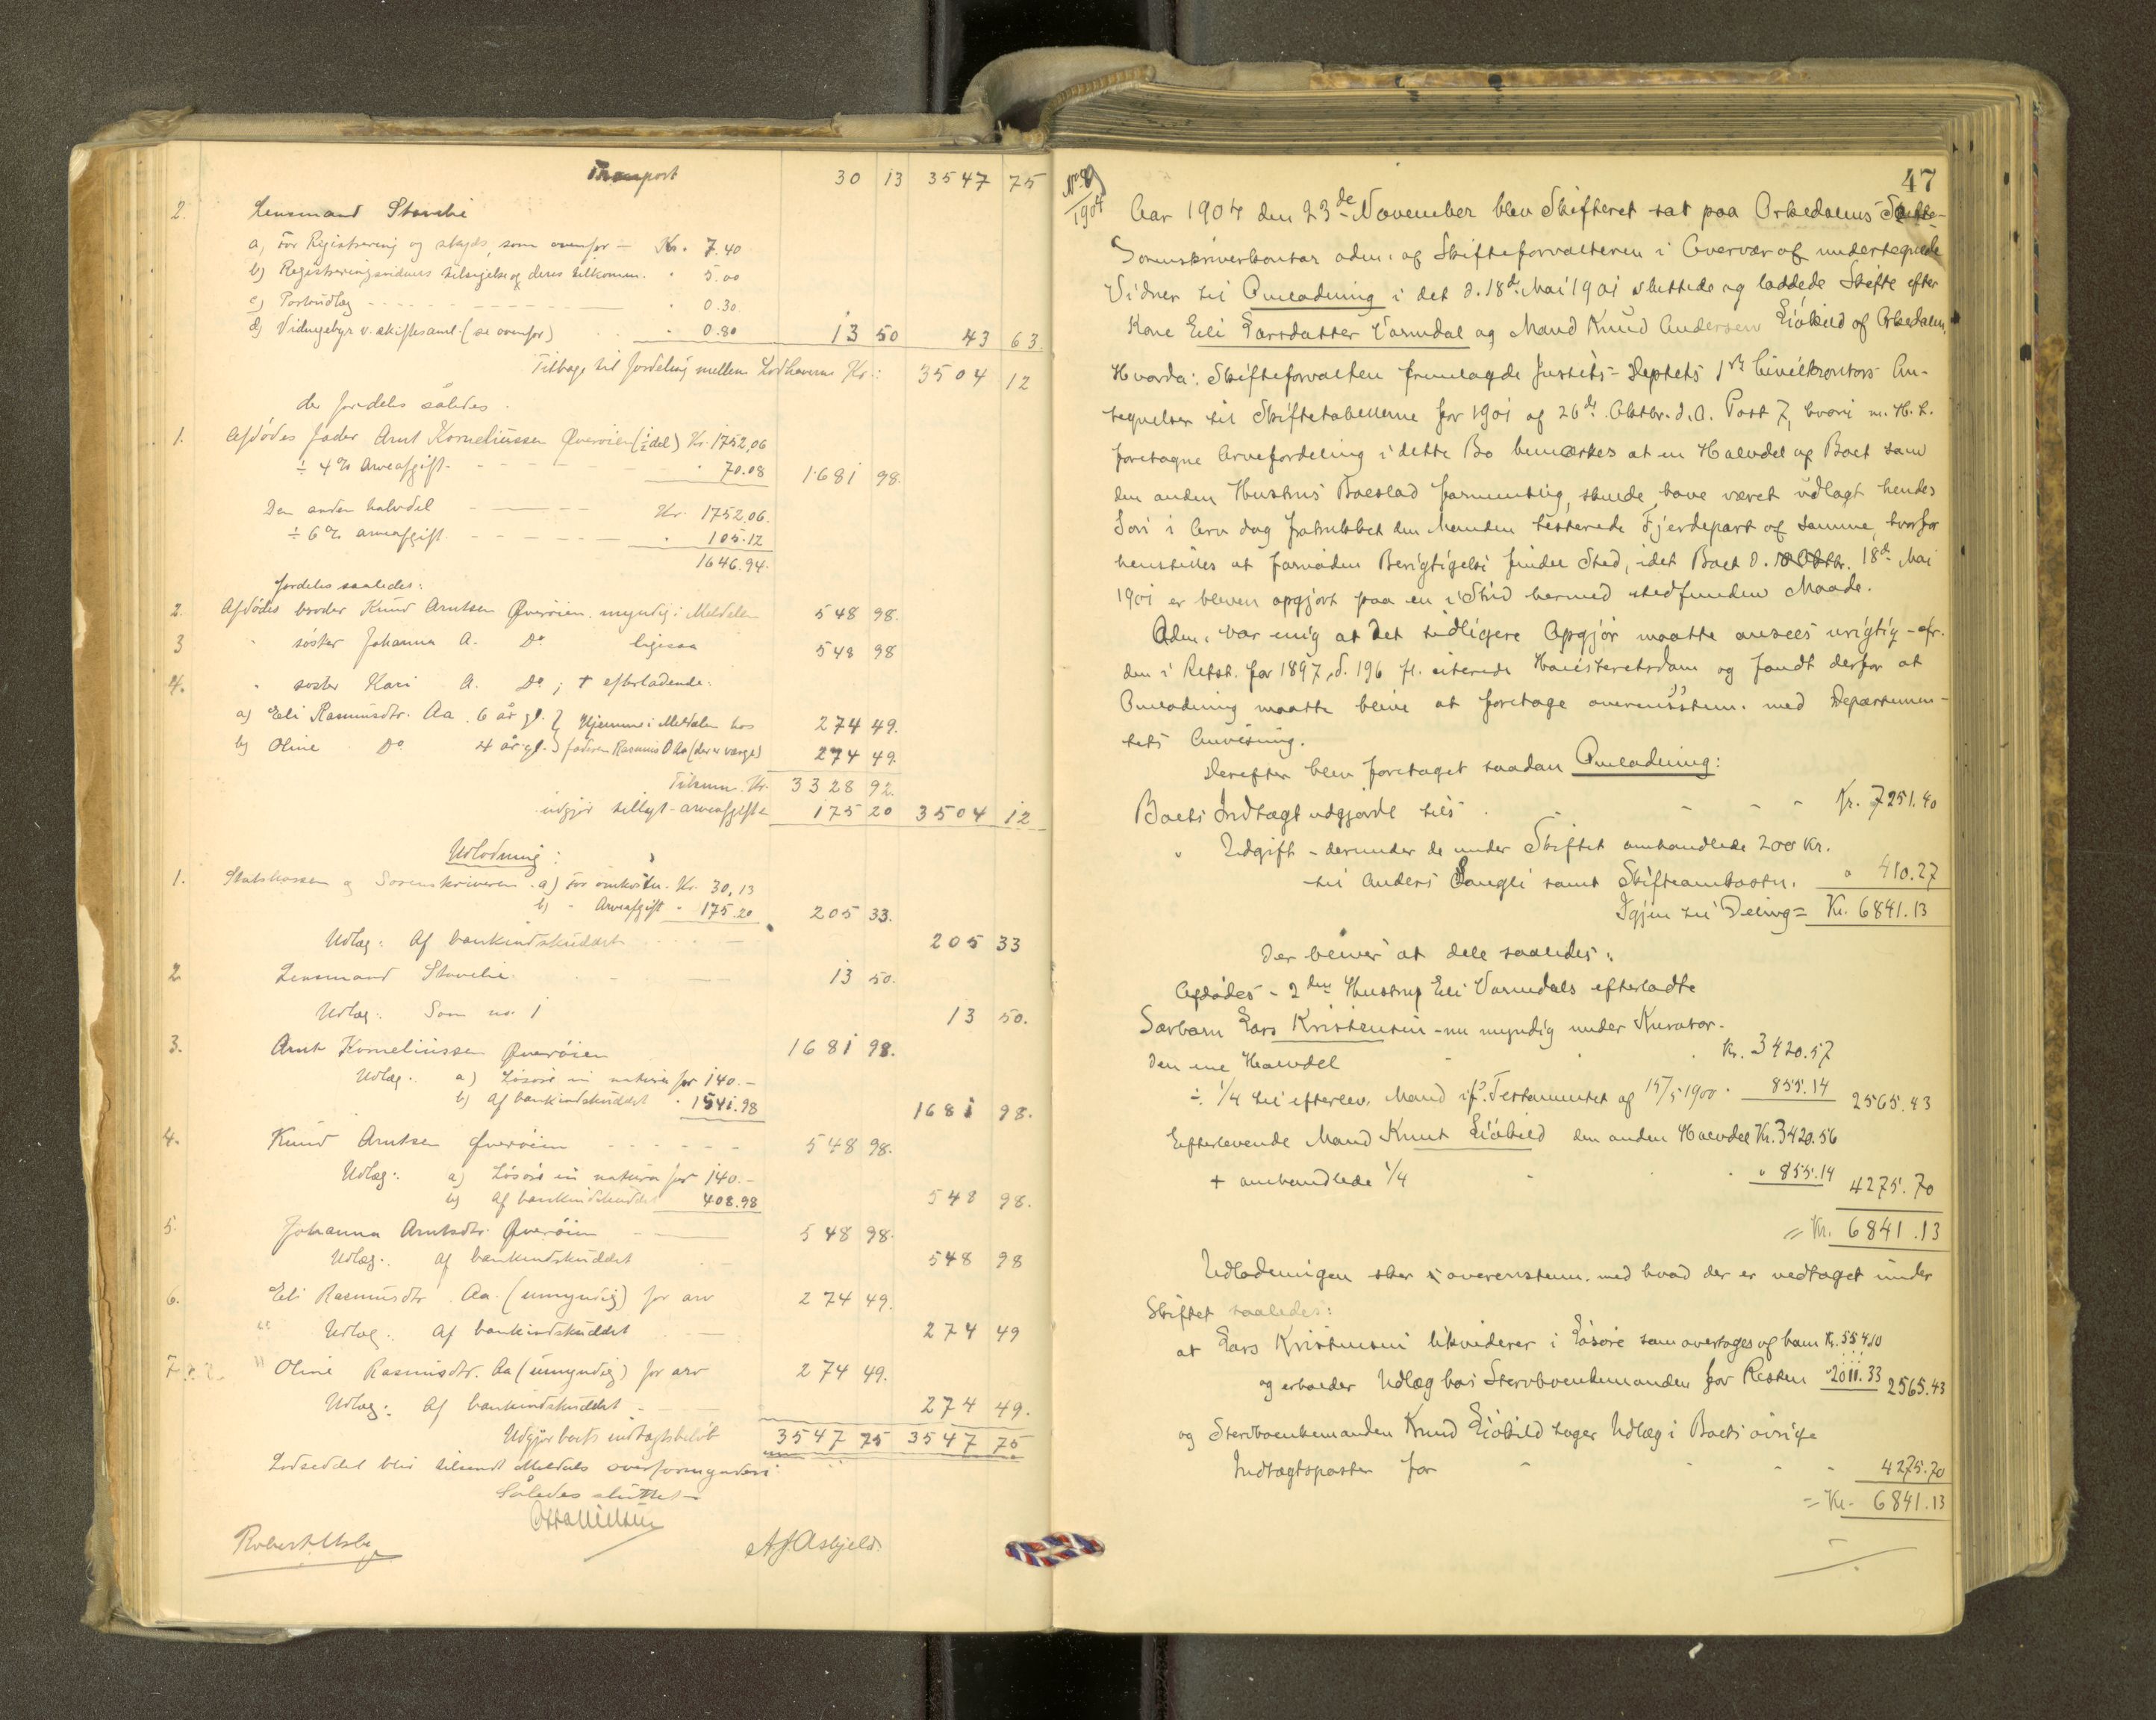 Transport 30 13 3547 75
2. Lensmand Storlie
a) For Registrering og skyds, som ovenfor — Kr. 7.40
b) Registreringsvidners tilsigelse og deres tilkomm. " 5.00
c) Portoudlæg — " 0.30
d) Vidnegebyr v. skiftesaml. (se ovenfor) " 0.80 13 50 43 63
Tilbage til fordeling mellem Lodhaverne Kr.: 3504 12
der fordeles således.
1. Afdødes fader Arnt Korneliussen Øverøien (½ del) Kr. 1752,06
÷ 4% Arveafgift - " 70.08 1681 98.
Den anden halvdel — Kr. 1752.06.
÷ 6% arveafgift - " 105.12
1646.94.
fordeles saaledes:
2. Afdødes broder Knud Arntsen Øverøien, myndig i Meldalen 548 98.
3 " søster Johanna A. Do ligesaa 548 98
4. " søster Kari A. Do ; † efterladende.
a) Eli Rasmusdtr. Aa 6 år gl. } hjemme i Meldalen hos 274 49.
b) Oline Do 4 år gl. } faderen Rasmus O Aa (der er værge) 274 49.
Tilsam. Kr. 3328 92.
udgjør tilligt arveafgifte 175 20 3504 12
Udlodning:
1. Statskassen og Sorenskriveren a) For omkostn. Kr. 30,13
b) " Arveafgift " 175.20 205 33.
Udlæg: Af bankindskuddet 205 33
2 Lensmand Storlie 13 50.
Udlæg: Som no. 1 13 50.
3. Arnt Korneliussen Øverøien 1681 98.
Udlæg: a) Løsøre in natura for 140.-
b) Af bankindskuddet " 1541.98 1681 98.
4. Knud Arntsen Øverøien 548 98.
Udlæg: a) Løsøre in natura for 140.-
b) Af bankindskuddet 408.98 548 98.
5. Johanna Arntsdtr. Øverøien 548 98.
Udlæg: Af bankindskuddet 548 98
6. Eli Rasmusdtr Aa (umyndig) for arv 274 49.
Udlæg: Af bankindskuddet 274 49
7. Oline Rasmusdtr. Aa (umyndig) for arv 274 49.
Udlæg: Af bankindskuddet 274 49.
Udgjør boets indtægtsbeløb 3547 75 3547 75
Lodseddel blir tilsendt Meldals overformynderi
Således sluttet —
A J Asbjeld.
47
No. 8/1904
Aar 1904 den 23de November blev Skifteret sat paa Orkedalens Skifte-
Sorenskriverkontor adm. af Skifteforvalteren i Overvær af undertegnede
Vidner til Omlodning i det d. 18de Mai 1901 sluttede og loddede Skifte efter
Kone Eli Larsdatter Vormdal og Mand Knud Andersen Liøkild af Orkedalen.
Hvorda: Skifteforvalten fremlagde Justits-Deptets 1ste Civilkontors An-
tegnelser til Skiftetabellerne for 1901 af 26de Oktbr. d. A. Post 7, hvori m. H. t.
foretagne Arvefordeling i dette Bo bemærkes at en Halvdel af Boet som
den anden Hustrus Boeslod formentlig skulde have været udlagt hendes
Søn i Arv dog fratrukket den Manden testerede Fjerdepart af samme, hvorfor
henstilles at fornøden Berigtigelse finder Sted, idet Boet d. 18de Mai
1901 er bleven opgjort paa en i Strid hermed stedfunden Maade.
Adm. var enig at det tidligere Opgjør maatte ansees urigtig - cfr.
den i Retst. for 1897, S. 196 fl. citerede Høiesteretsdom og fandt derfor at
Omlodning maatte blive at foretage overensstem. med Departemen-
tets Anvisning.
Derefter blev foretaget saadan Omlodning:
Boets Indtægt udgjorde tils. Kr. 7251.40
" Udgift - derunder de under Skiftet omhandlede 200 Kr.
til Anders Songli samt Skifteomkostn. " 410.27
Igjen til Deling = Kr. 6841.13
Der bliver at dele saaledes:
Afdødes - 2den Hustru Eli Vormdals efterladte
Særbarn Lars Kristensen - nu myndig under Kurator.
den ene Halvdel Kr. 3420.57
÷ 1/4 til efterlev. Mand ifø. Testamentet af 15/5 1900 " 855.14 2565.43
Efterlevende Mand Knut Liøkild den anden Halvdel Kr. 3420.56
+ omhandlede 1/4 " 855.14 4275.70
= Kr. 6841.13
Udlodningen sker i overensstem. med hvad der er vedtaget under
Skiftet saaledes:
at Lars Kristensen likviderer i Løsøre som overtages af ham Kr. 554.10
og erholder Udlæg hos Stervboenkemanden for Resten 2011.33 2565.43
og Stervboenkemanden Knud Liøkild tager Udlæg i Boets øvrige
Indtægtsposter for 4275.70
= Kr. 6841.13